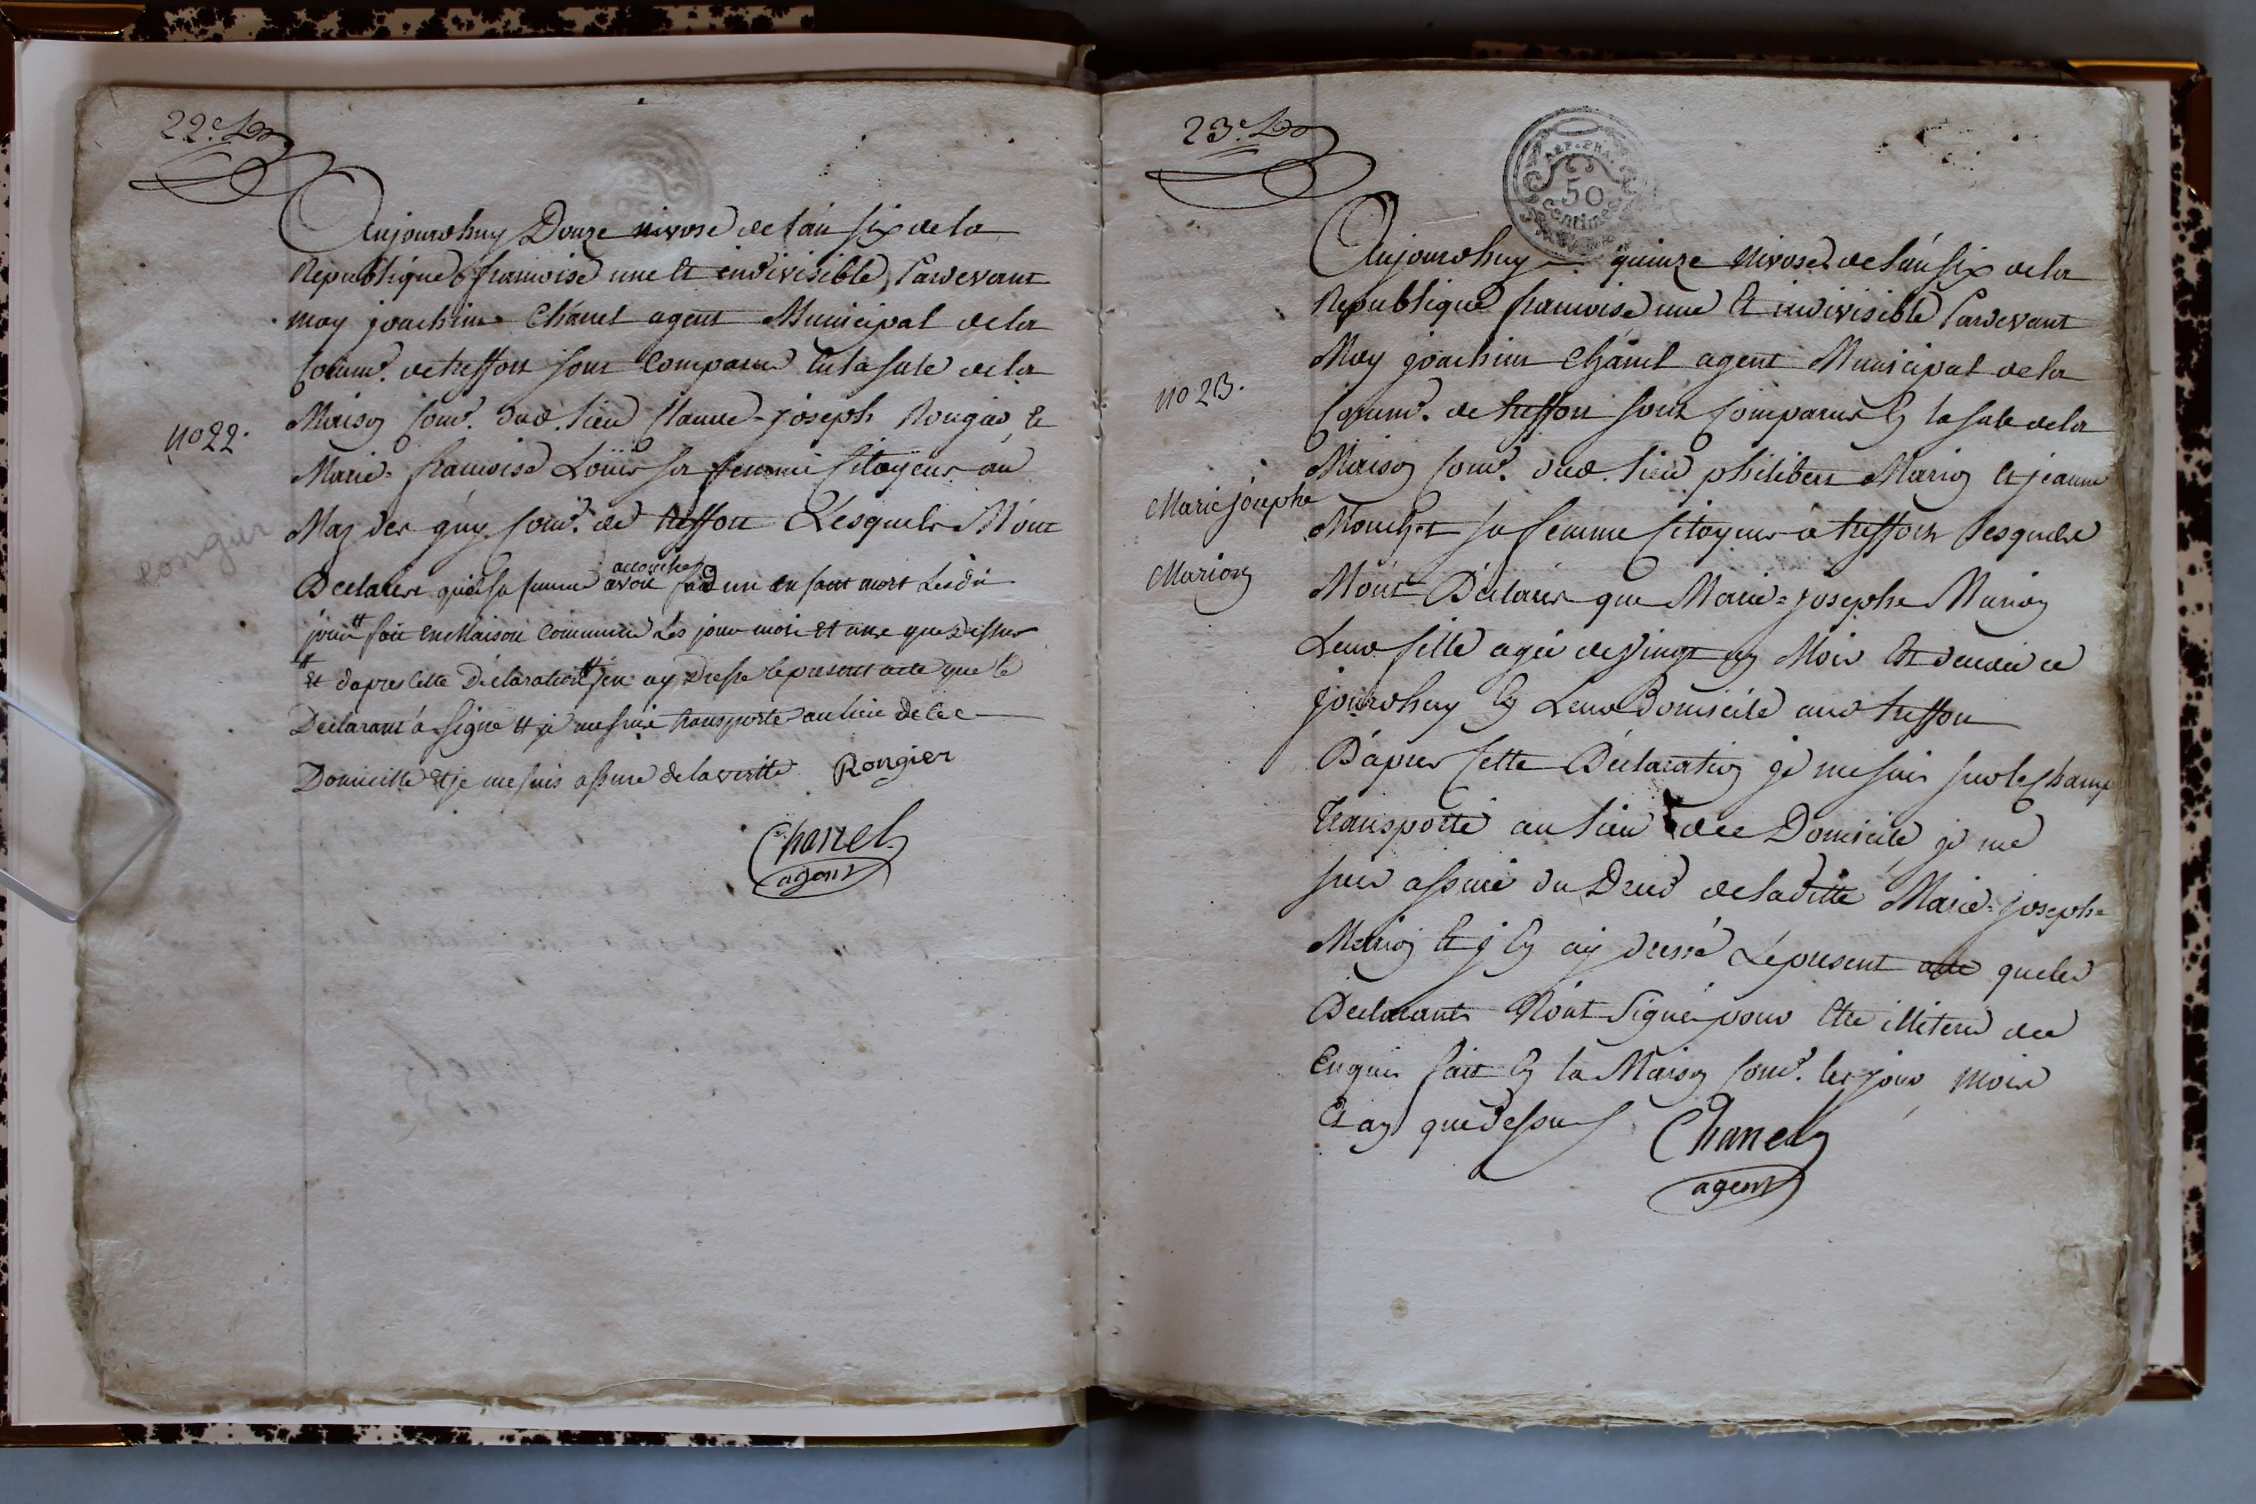 22e.
Aujourdhuy Douze nivose de l'an six de la
Republique francoise une et indivisible, Pardevant
moy joachim Chanel agent Municipal de la
Comme. de treffort sont Comparus en la sale de la
Maison Come. dud. lieu Claude-joseph Rongier, et
no 22.
Marie-francoise Loüis sa femme Citoyens au
Maz des guy Come. de treffort Lesquels M'ont
Rongier
Declarer que sa femme avoit accouchez d'un enfant mort Lesdit
jour # fait en Maison Commune Les jour mois et ans que Dessus
# et dapres cette Declaration # jen ay Dresse le present acte que le
Declarant a signe et je me suis transporte au lieu de ce
Domicille et je me suis assure de la veritte Rongier
Chanel
agent
23e.
REP. FRA.
50
Centimes
Aujourdhuy quinze nivose de l'an six de la
Republique francoise une et indivisible Pardevant
Moy joachim Chanel agent Municipal de la
no 23.
Comme. de treffort sont Comparus en la sale de la
Maison Come. dud. lieu philibert Marion et jeanne
Marie josephe
Marion
sa femme Citoyens a treffort Lesquels
M'ont Déclarer que Marie-josephe Marion
Leur fille agée de vingt un Mois est décédée ce
jourdhuy en Leur Domicile aud treffort
D'apres Cette Déclaration je me suis sur le Champ
transporté au lieu de ce Domicile je me
suis assuré du Deced de laditte Marie-josephe
Marion et j'en ay dressé Le present acte que les
Declarants N'ont Signé pour être illiterés de ce
Enquis fait en la Maison Come. les jour mois
Et an que dessus
Chanel
agent